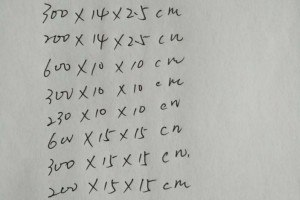 300 × 14 × 2.5 cm
200 × 14 × 2.5 cm
600 × 10 × 10 cm
300 × 10 × 10 cm
230 × 10 × 10 cm
600 × 15 × 15 cm
300 × 15 × 15 cm.
200 × 15 × 15 cm